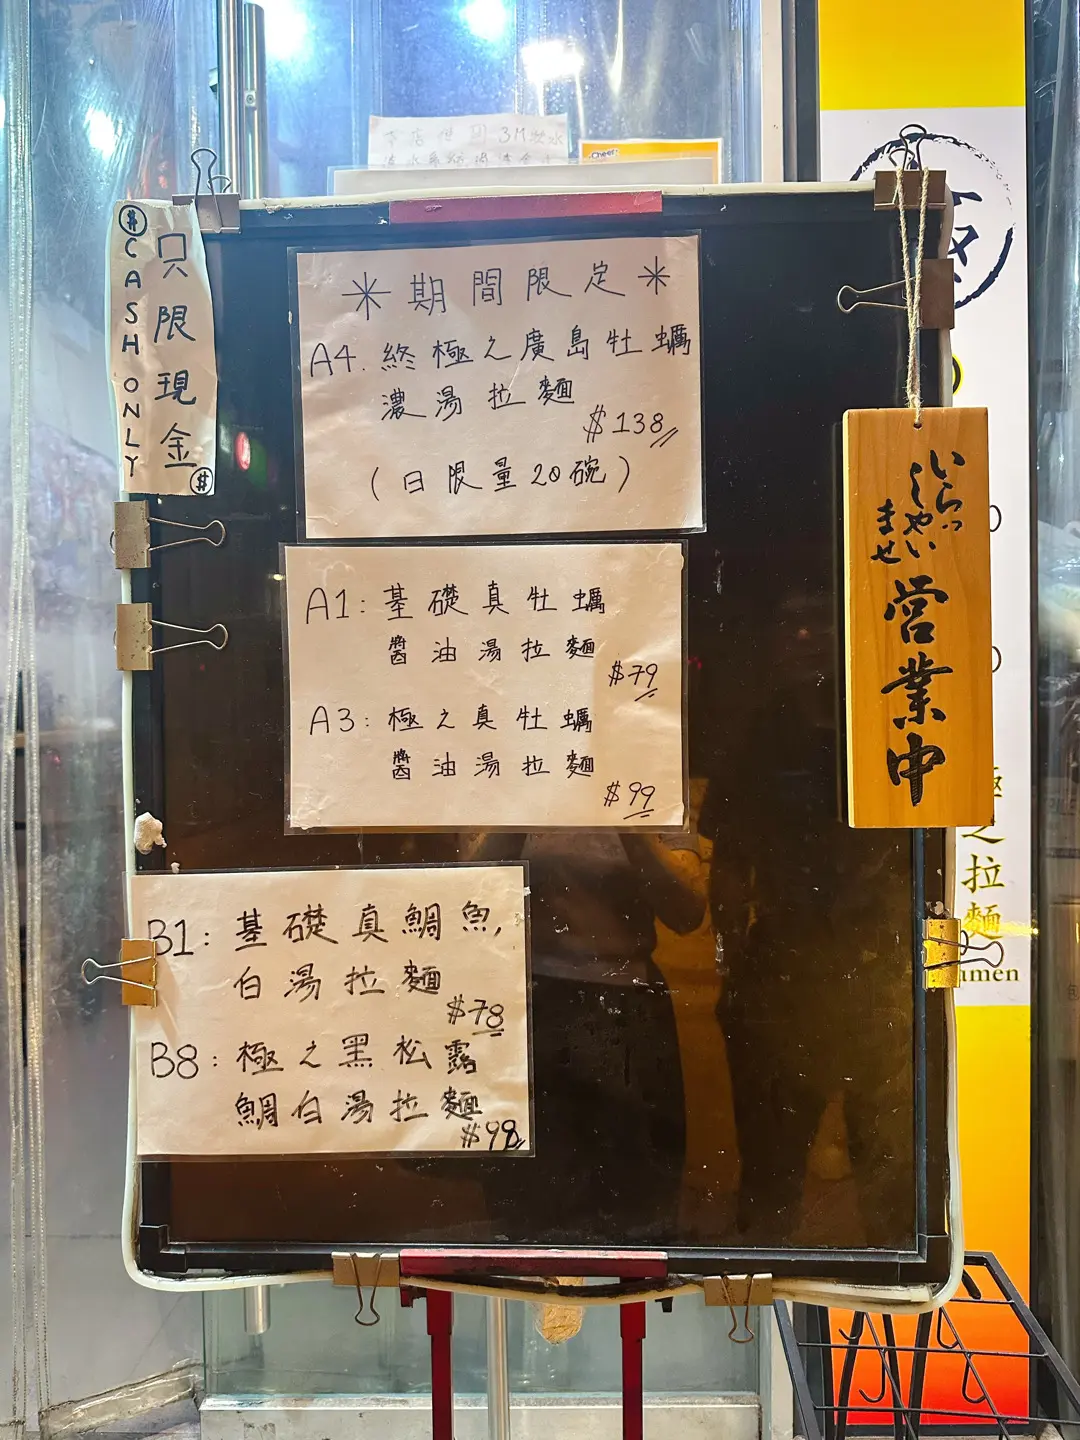 本店使用3M濾水
Cheer!
$
只限現金
CASH ONLY
$
*期間限定*
A4. 終極之廣島牡蠣
濃湯拉麵
$138
(日限量20碗)
A1: 基礎真牡蠣
醬油湯拉麵
$79
A3: 極之真牡蠣
醬油湯拉麵
$99
B1: 基礎真鯛魚,
白湯拉麵
$78
B8: 極之黑松露
鯛白湯拉麵
$98
いらっ
しゃい
ませ
営業中
極之拉麵
amen